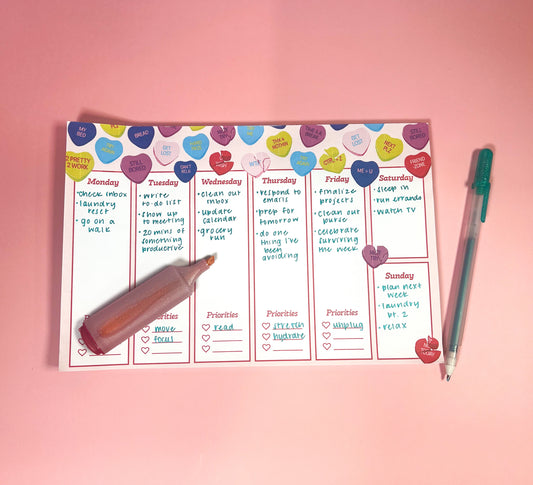 MY BED
BREAD
TAKE A BREAK
NEXT PLZ
STILL BORED
2 PRETTY 2 WORK
STILL BORED
GET LOST
CAN'T DEAL
CTRL + Z
ME > U
FRIEND ZONE
Monday
• check inbox
• laundry
reset
• go on a
walk
Tuesday
• write
to do list
• show up
to meeting
• 20 mins of
something
productive
Priorities
move
focus
Wednesday
• clean out
inbox
• update
calendar
• grocery
run
Priorities
read
Thursday
• respond to
emails
• prep for
tomorrow
• do one
thing i've
been
avoiding
Priorities
stretch
hydrate
Friday
• finalize
projects
• clean out
purse
• celebrate
surviving
the week
Priorities
unplug
Saturday
• sleep in
• run errands
• watch TV
NICE TRY
Sunday
• plan next
week
• laundry
pt. 2
• relax